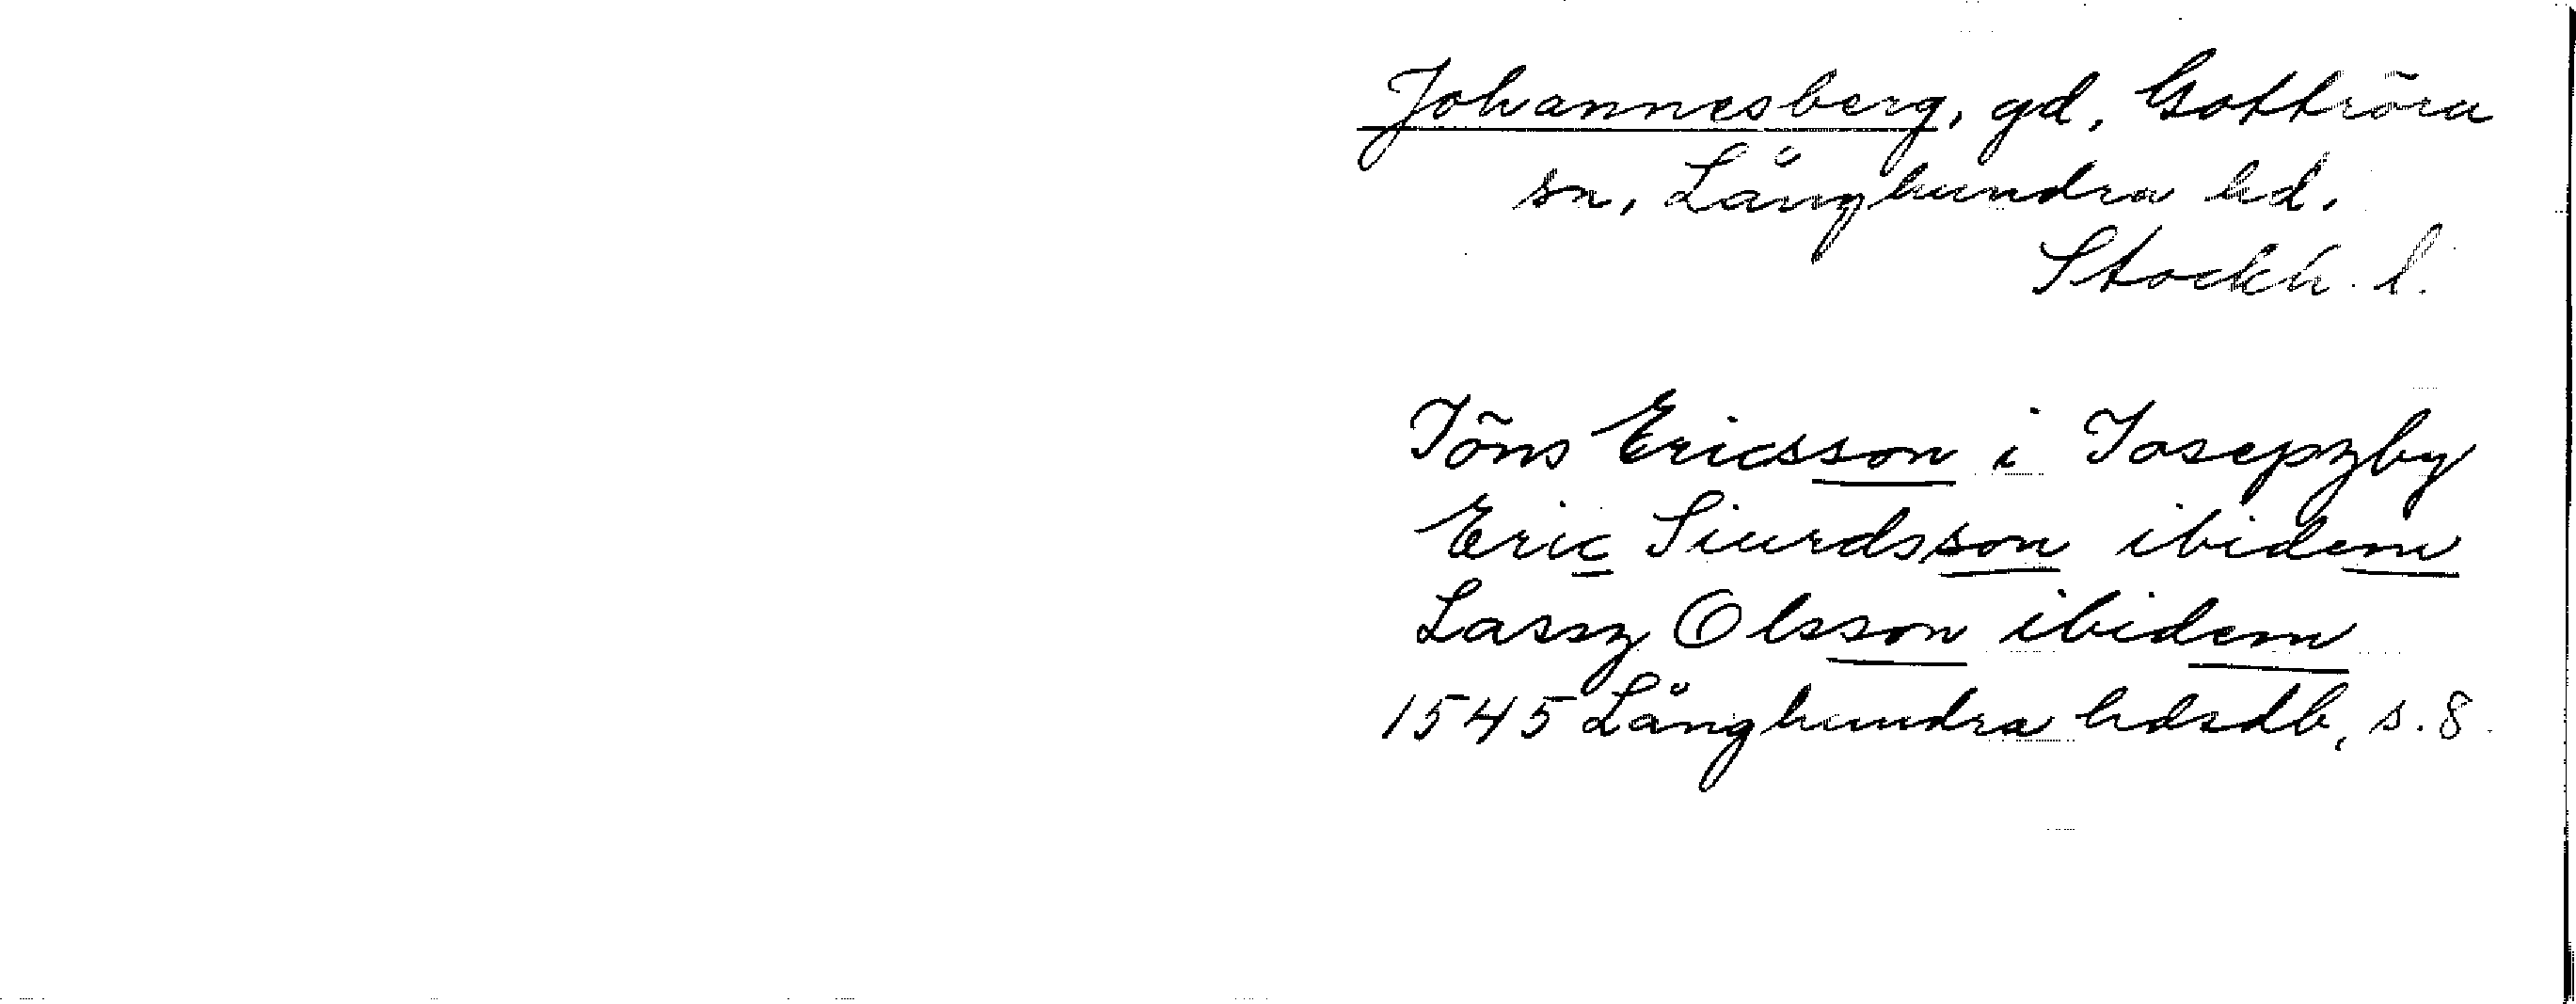 Johannesberg, gd, Gottröra
sn, Långhundra hd.
Stockh. l.
Jöns Ericsson i Josepzby
Eric Siurdsson ibidem
Lassz Olsson ibidem
1545 Långhundra hdsdb, s. 8.